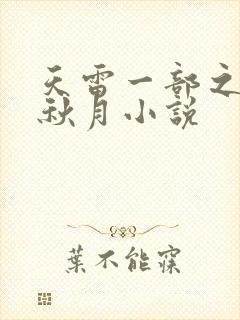 天雷一部之
秋月小説
葉不能寐